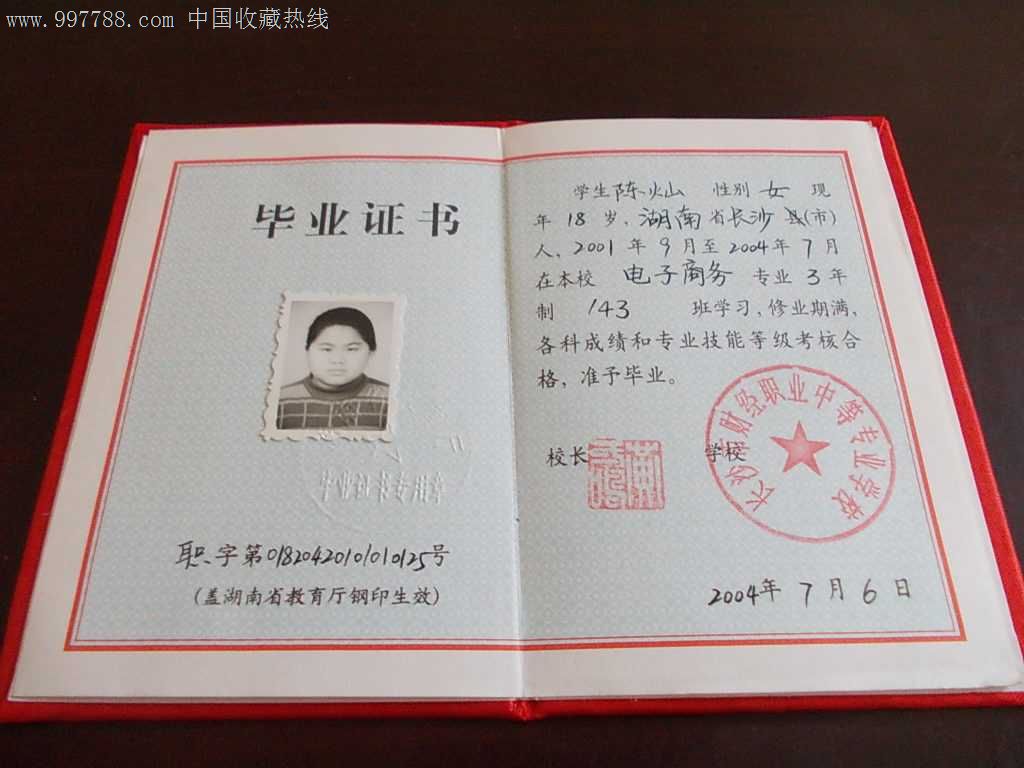 www.997788.com 中国收藏热线
毕业证书
职、字第01820420101010125号
(盖湖南省教育厅钢印生效)
学生陈灿 性别女 现
年18岁、湖南省长沙县(市)
人、2001年9月至2004年7月
在本校 电子商务 专业3年
制 143 班学习,修业期满,
各科成绩和专业技能等级考核合
格,准予毕业。
校长
学校
长沙市财经职业中等专业学校
2004年7月6日